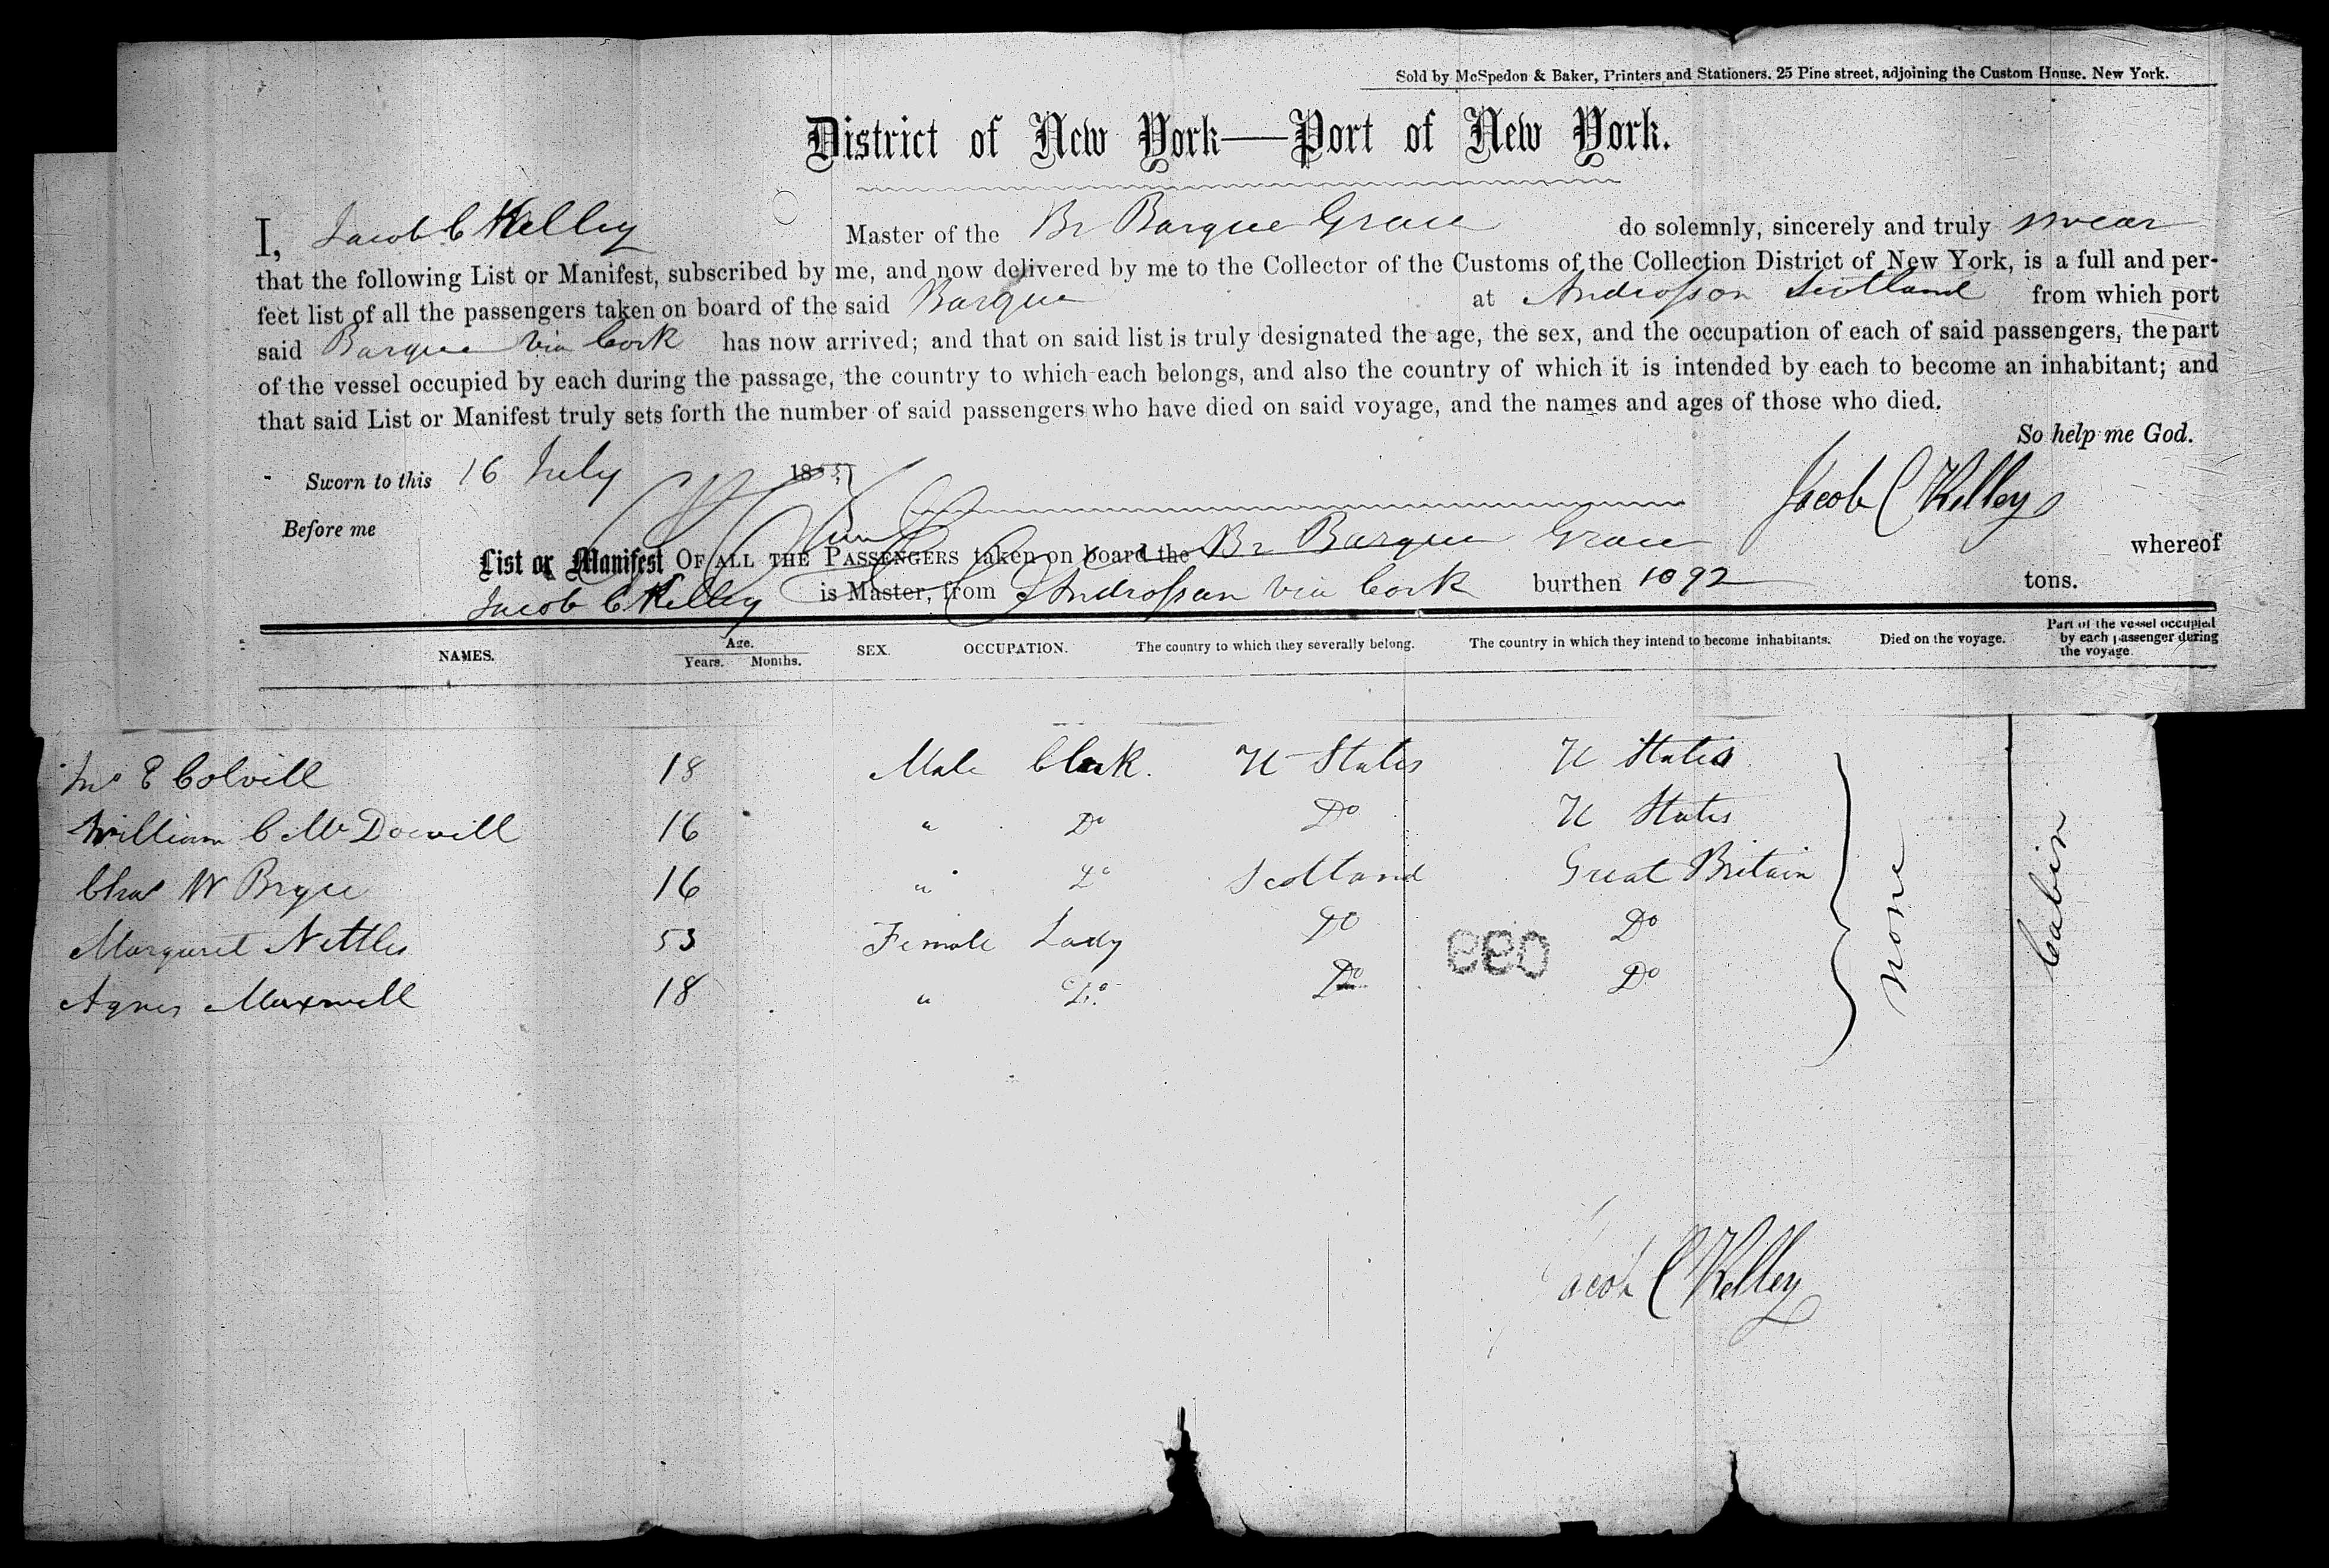 Sold by McSpedon & Baker, Printers and Stationers. 25 Pine street, adjoining the Custom House. New York.
District of New York—Port of New York.
I, Jacob C Kelley Master of the Br Barque Grace do solemnly, sincerely and truly swear
that the following List or Manifest, subscribed by me, and now delivered by me to the Collector of the Customs of the Collection District of New York, is a full and per-
fect list of all the passengers taken on board of the said Barque at Androssan Scotland from which port
said Barque via Cork has now arrived; and that on said list is truly designated the age, the sex, and the occupation of each of said passengers, the part
of the vessel occupied by each during the passage, the country to which each belongs, and also the country of which it is intended by each to become an inhabitant; and
that said List or Manifest truly sets forth the number of said passengers who have died on said voyage, and the names and ages of those who died.
So help me God.
Sworn to this 16 July 18 Jacob C Kelley
Before me
List or Manifest OF ALL THE PASSENGERS taken on board the Br Barque Grace whereof
Jacob C Kelley is Master, from Androssan via Cork burthen 1092 tons.
NAMES. Age. Years. Months. SEX. OCCUPATION. The country to which they severally belong. The country in which they intend to become inhabitants. Died on the voyage. Part of the vessel occupied by each passenger during the voyage.
Jno E Colvill 18 Male Clerk. U States U States
William C McDowill 16 " Do Do U States
Chas W Bryce 16 " Do Scotland Great Britain
Margaret Nettles 53 Female Lady Do Do
Agnes Maxwell 18 " Do Do Do
None
Cabin
Jacob C Kelley